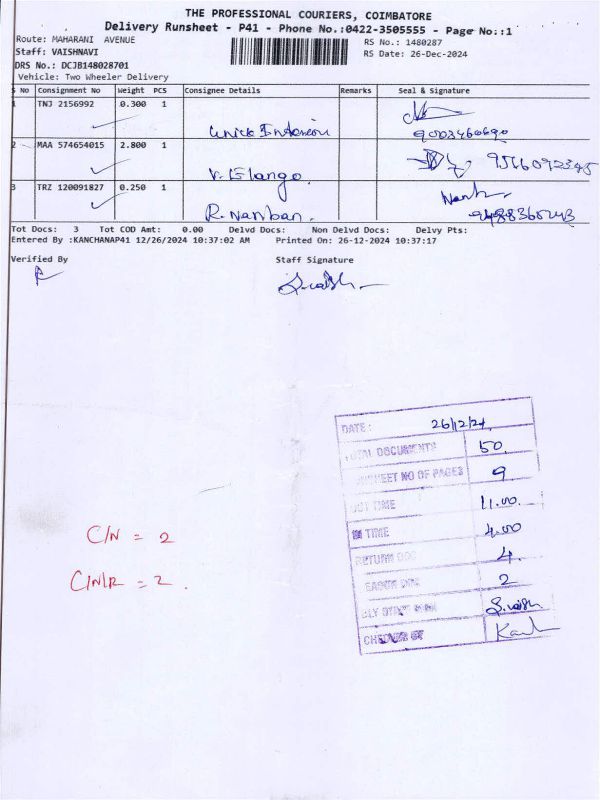 THE PROFESSIONAL COURIERS, COIMBATORE
Delivery Runsheet - P41 - Phone No.:0422-3505555 - Page No.:1
Route: MAHARANI AVENUE
RS No.: 1480287
Staff: VAISHNAVI
RS Date: 26-Dec-2024
DRS No.: DCJB148028701
Vehicle: Two Wheeler Delivery
S No Consignment No Weight PCS Consignee Details Remarks Seal & Signature
1 TNJ 2156992 0.300 1
9003460690
2 MAA 574654015 2.800 1 V. Elango. 9566092345
3 TRZ 120091827 0.250 1 R. Nanban.
Tot Docs: 3 Tot COD Amt: 0.00 Delvd Docs: Non Delvd Docs: Delvy Pts:
Entered By :KANCHANAP41 12/26/2024 10:37:02 AM Printed On: 26-12-2024 10:37:17
Verified By Staff Signature
DATE: 26/12/24
TOTAL DOCUMENTS 50
RUNSHEET NO OF PAGES 9
OUT TIME 11.00
IN TIME 4.00
RETURN DOC 4
2
C/N = 2
C/N/R = 2.